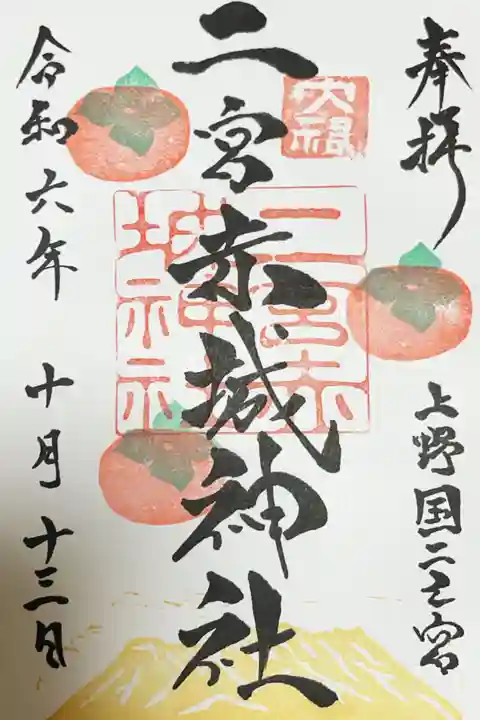 奉拝
上野国二之宮
大福
二宮赤城神社
二宮赤城神社
令和六年 十月十三日